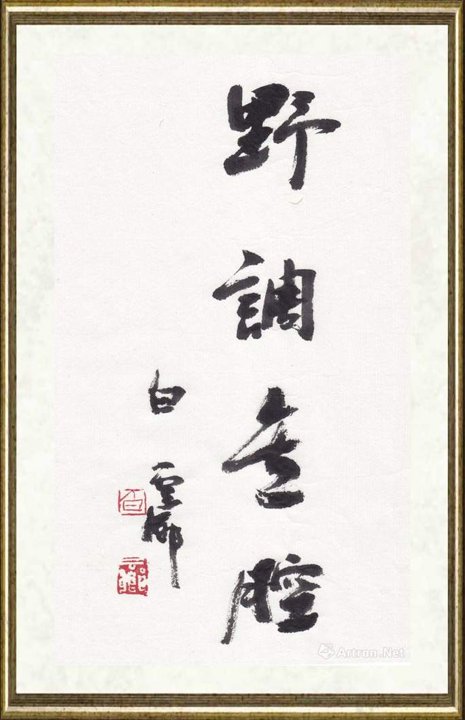 野調無腔
白雲鄉
Artron.Net